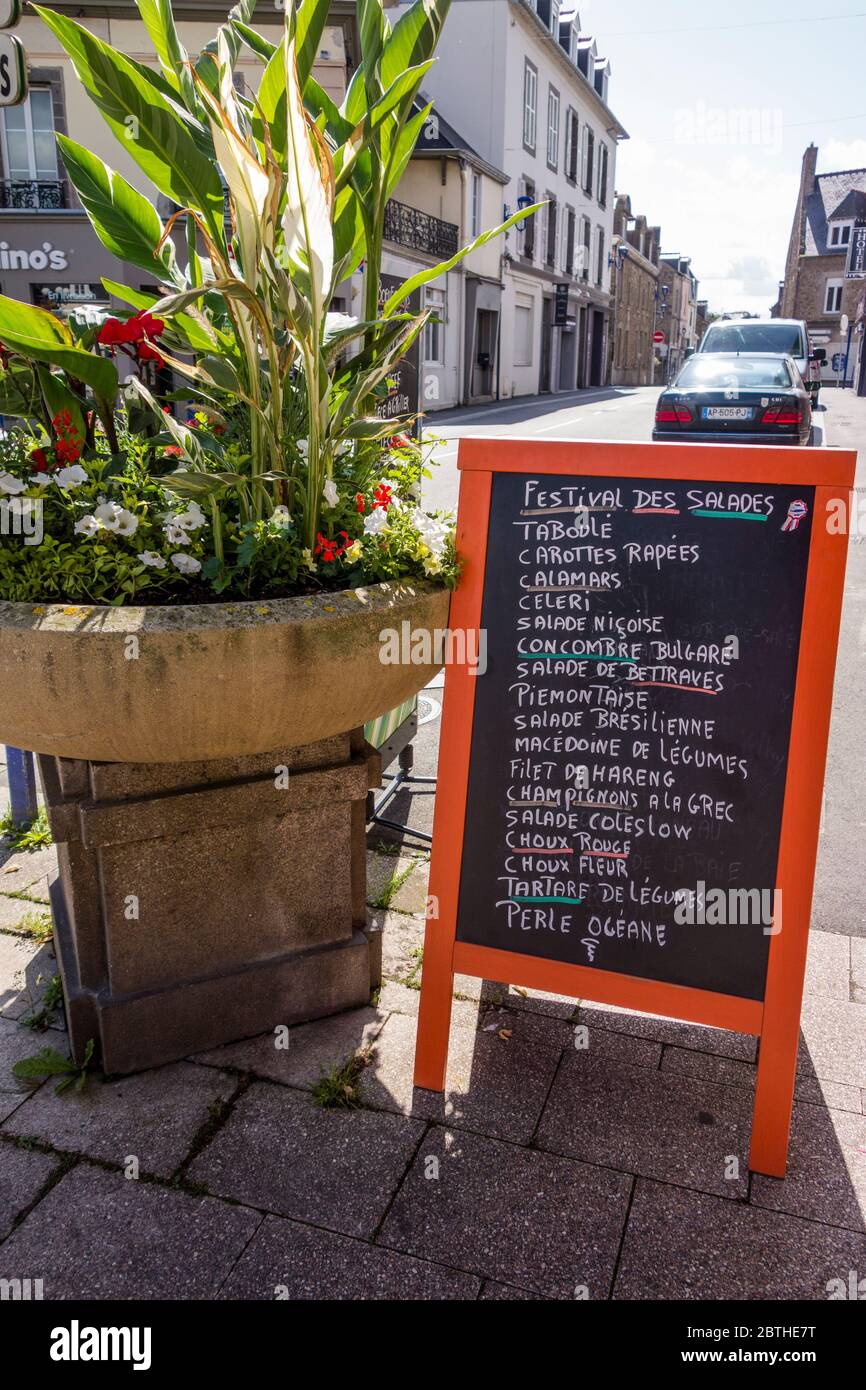 S
ino's
En livraison
HOTEL
AP-505
FESTIVAL DES SALADES
TABOULÉ
CAROTTES RAPÉES
CALAMARS
CELERI
SALADE NIÇOISE
CONCOMBRE BULGARE
SALADE DE BETTRAVES
PIEMONTAISE
SALADE BRESILIENNE
MACÉDOINE DE LÉGUMES
FILET DE HARENG
CHAMPIGNONS A LA GREC
SALADE COLESLOW
CHOUX ROUGE
CHOUX FLEUR
TARTARE DE LÉGUMES
PERLE OCÉANE
alamy
alamy
Image ID: 2BTHE7T
www.alamy.com